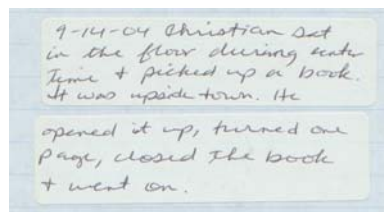 9-14-04 Christian sat
in the floor during center
time + picked up a book.
It was upside town. He
opened it up, turned one
page, closed the book
+ went on.